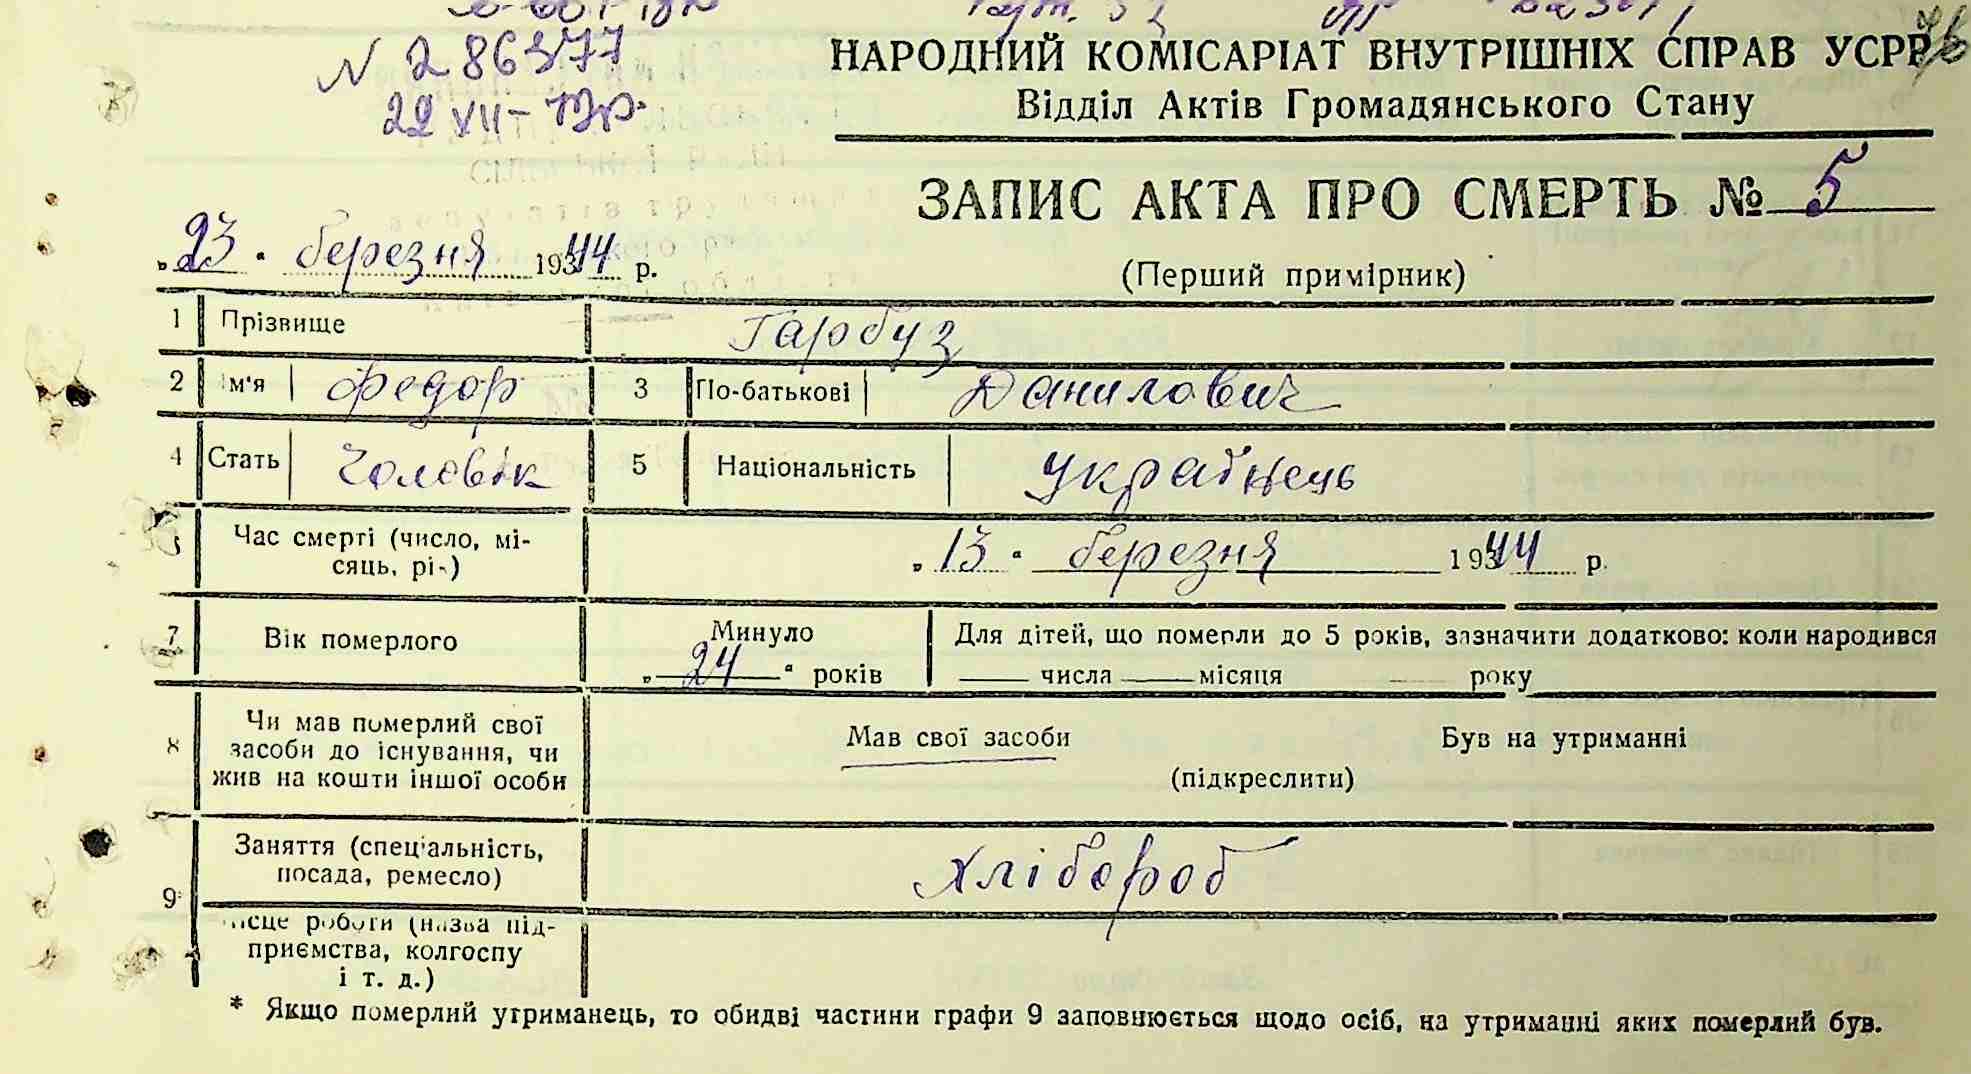 N 286377
22 XII-
НАРОДНИЙ КОМІСАРІАТ ВНУТРІШНІХ СПРАВ УСРР
Відділ Актів Громадянського Стану
ЗАПИС АКТА ПРО СМЕРТЬ № 5
„23“ березня 1944 р.
(Перший примірник)
1 Прізвище Гарбуз
2 Ім'я Федор 3 По-батькові Данилович
4 Стать Чоловік 5 Національність Українець
Час смерті (число, мі-
сяць, рік)
„13“ березня 1944 р.
7 Вік померлого
Минуло
„24“ років
Для дітей, що померли до 5 років, зазначити додатково: коли народився
числа місяця року
8 Чи мав померлий свої
засоби до існування, чи
жив на кошти іншої особи
Мав свої засоби Був на утриманні
(підкреслити)
9 Заняття (спеціальність,
посада, ремесло)
Хлібороб
Місце роботи (назва під-
приємства, колгоспу
і т. д.)
* Якщо померлий утриманець, то обидві частини графи 9 заповнюється щодо осіб, на утриманні яких померлий був.